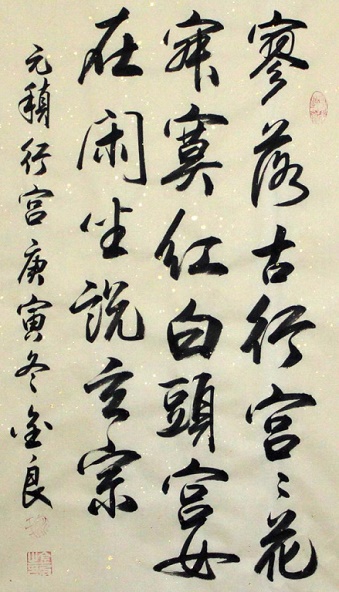 寥落古行宫々花
寂寞红白頭宫女
在闲坐説玄宗
元稹行宫庚寅冬金良